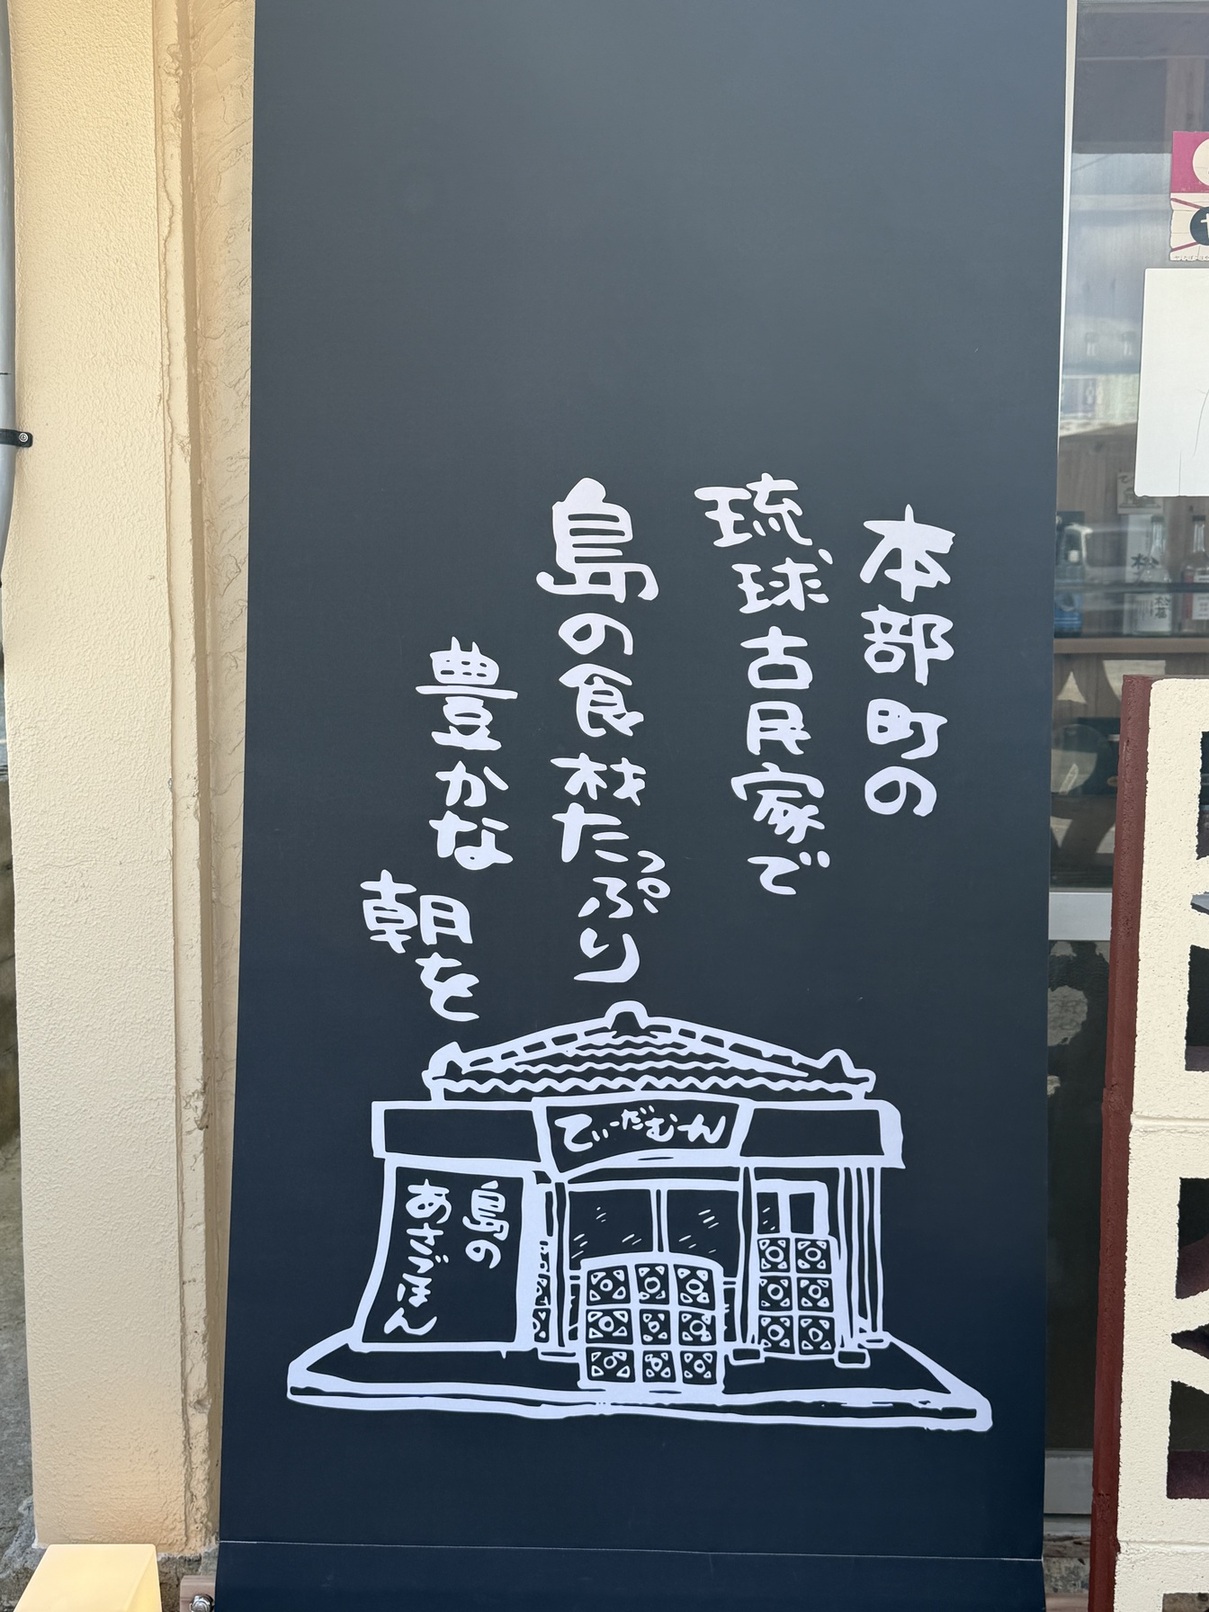 本部町の
琉球古民家で
島の食材たっぷり
豊かな
朝を
てぃーだむん
島の
あさごはん